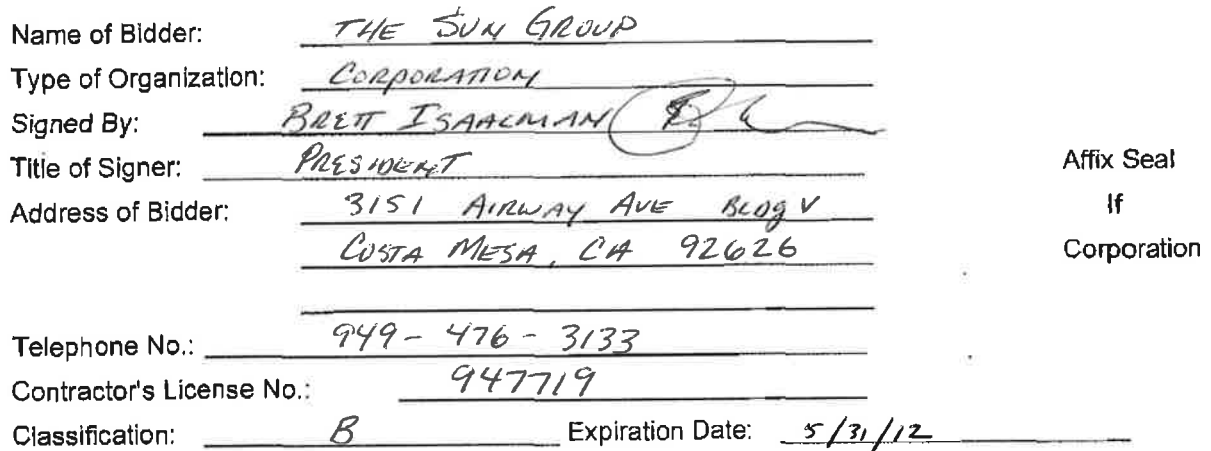 Name of Bidder: THE SUN GROUP
Type of Organization: CORPORATION
Signed By: BRETT ISAACMAN
Title of Signer: PRESIDENT
Affix Seal
Address of Bidder: 3151 AIRWAY AVE BLDG V
If
COSTA MESA, CA 92626
Corporation
Telephone No.: 949-476-3133
Contractor's License No.: 947719
Classification: B Expiration Date: 5/31/12